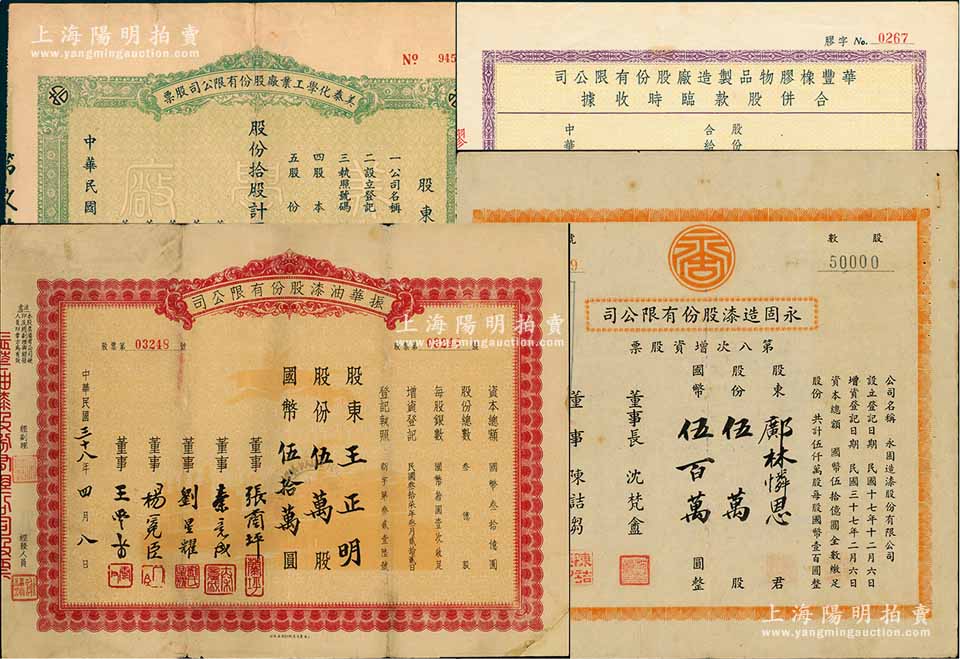 上海陽明拍賣
www.yangmingauction.com
No 945
美泰化學工業廠股份有限公司股票
股東
一公司名稱
二設立登記
三執照號碼
四股本
五股份
股份拾股計
中華民國
膠字 No. 0267
華豐橡膠物品製造廠股份有限公司
合併股款臨時收據
股份
合給
中華
振華油漆股份有限公司
股票第 03248 號
股票第
號
資本總額 國幣叁拾億圓
股份總數 叁億股
每股銀數 國幣拾圓壹次繳足
增資登記 民國叁拾柒年叁月貳拾貳日
登記執照 新字第叁貳壹陸號
股東 王正明
股份 伍萬 股
國幣 伍拾萬 圓
董事 張蘭坪
董事 秦亮
董事 劉星耀
董事 楊冕臣
董事 王
中華民國三十八年四月八日
經副理
經發人員
上海陽明拍賣
www.yangmingauction.com
股數
50000
號
9
永固造漆股份有限公司
第八次增資股票
公司名稱 永固造漆股份有限公司
設立登記日期 民國十七年十二月六日
增資登記日期 民國三十七年二月六日
資本總額 國幣伍拾億圓全數繳足
股份 共計伍仟萬股每股國幣壹百圓整
股東 鄺林憐恩 君
股份 伍萬 股
國幣 伍百萬 圓整
董事長 沈梵盦
董事 陳詰芻
上海陽明拍賣
www.yangmingauction.com